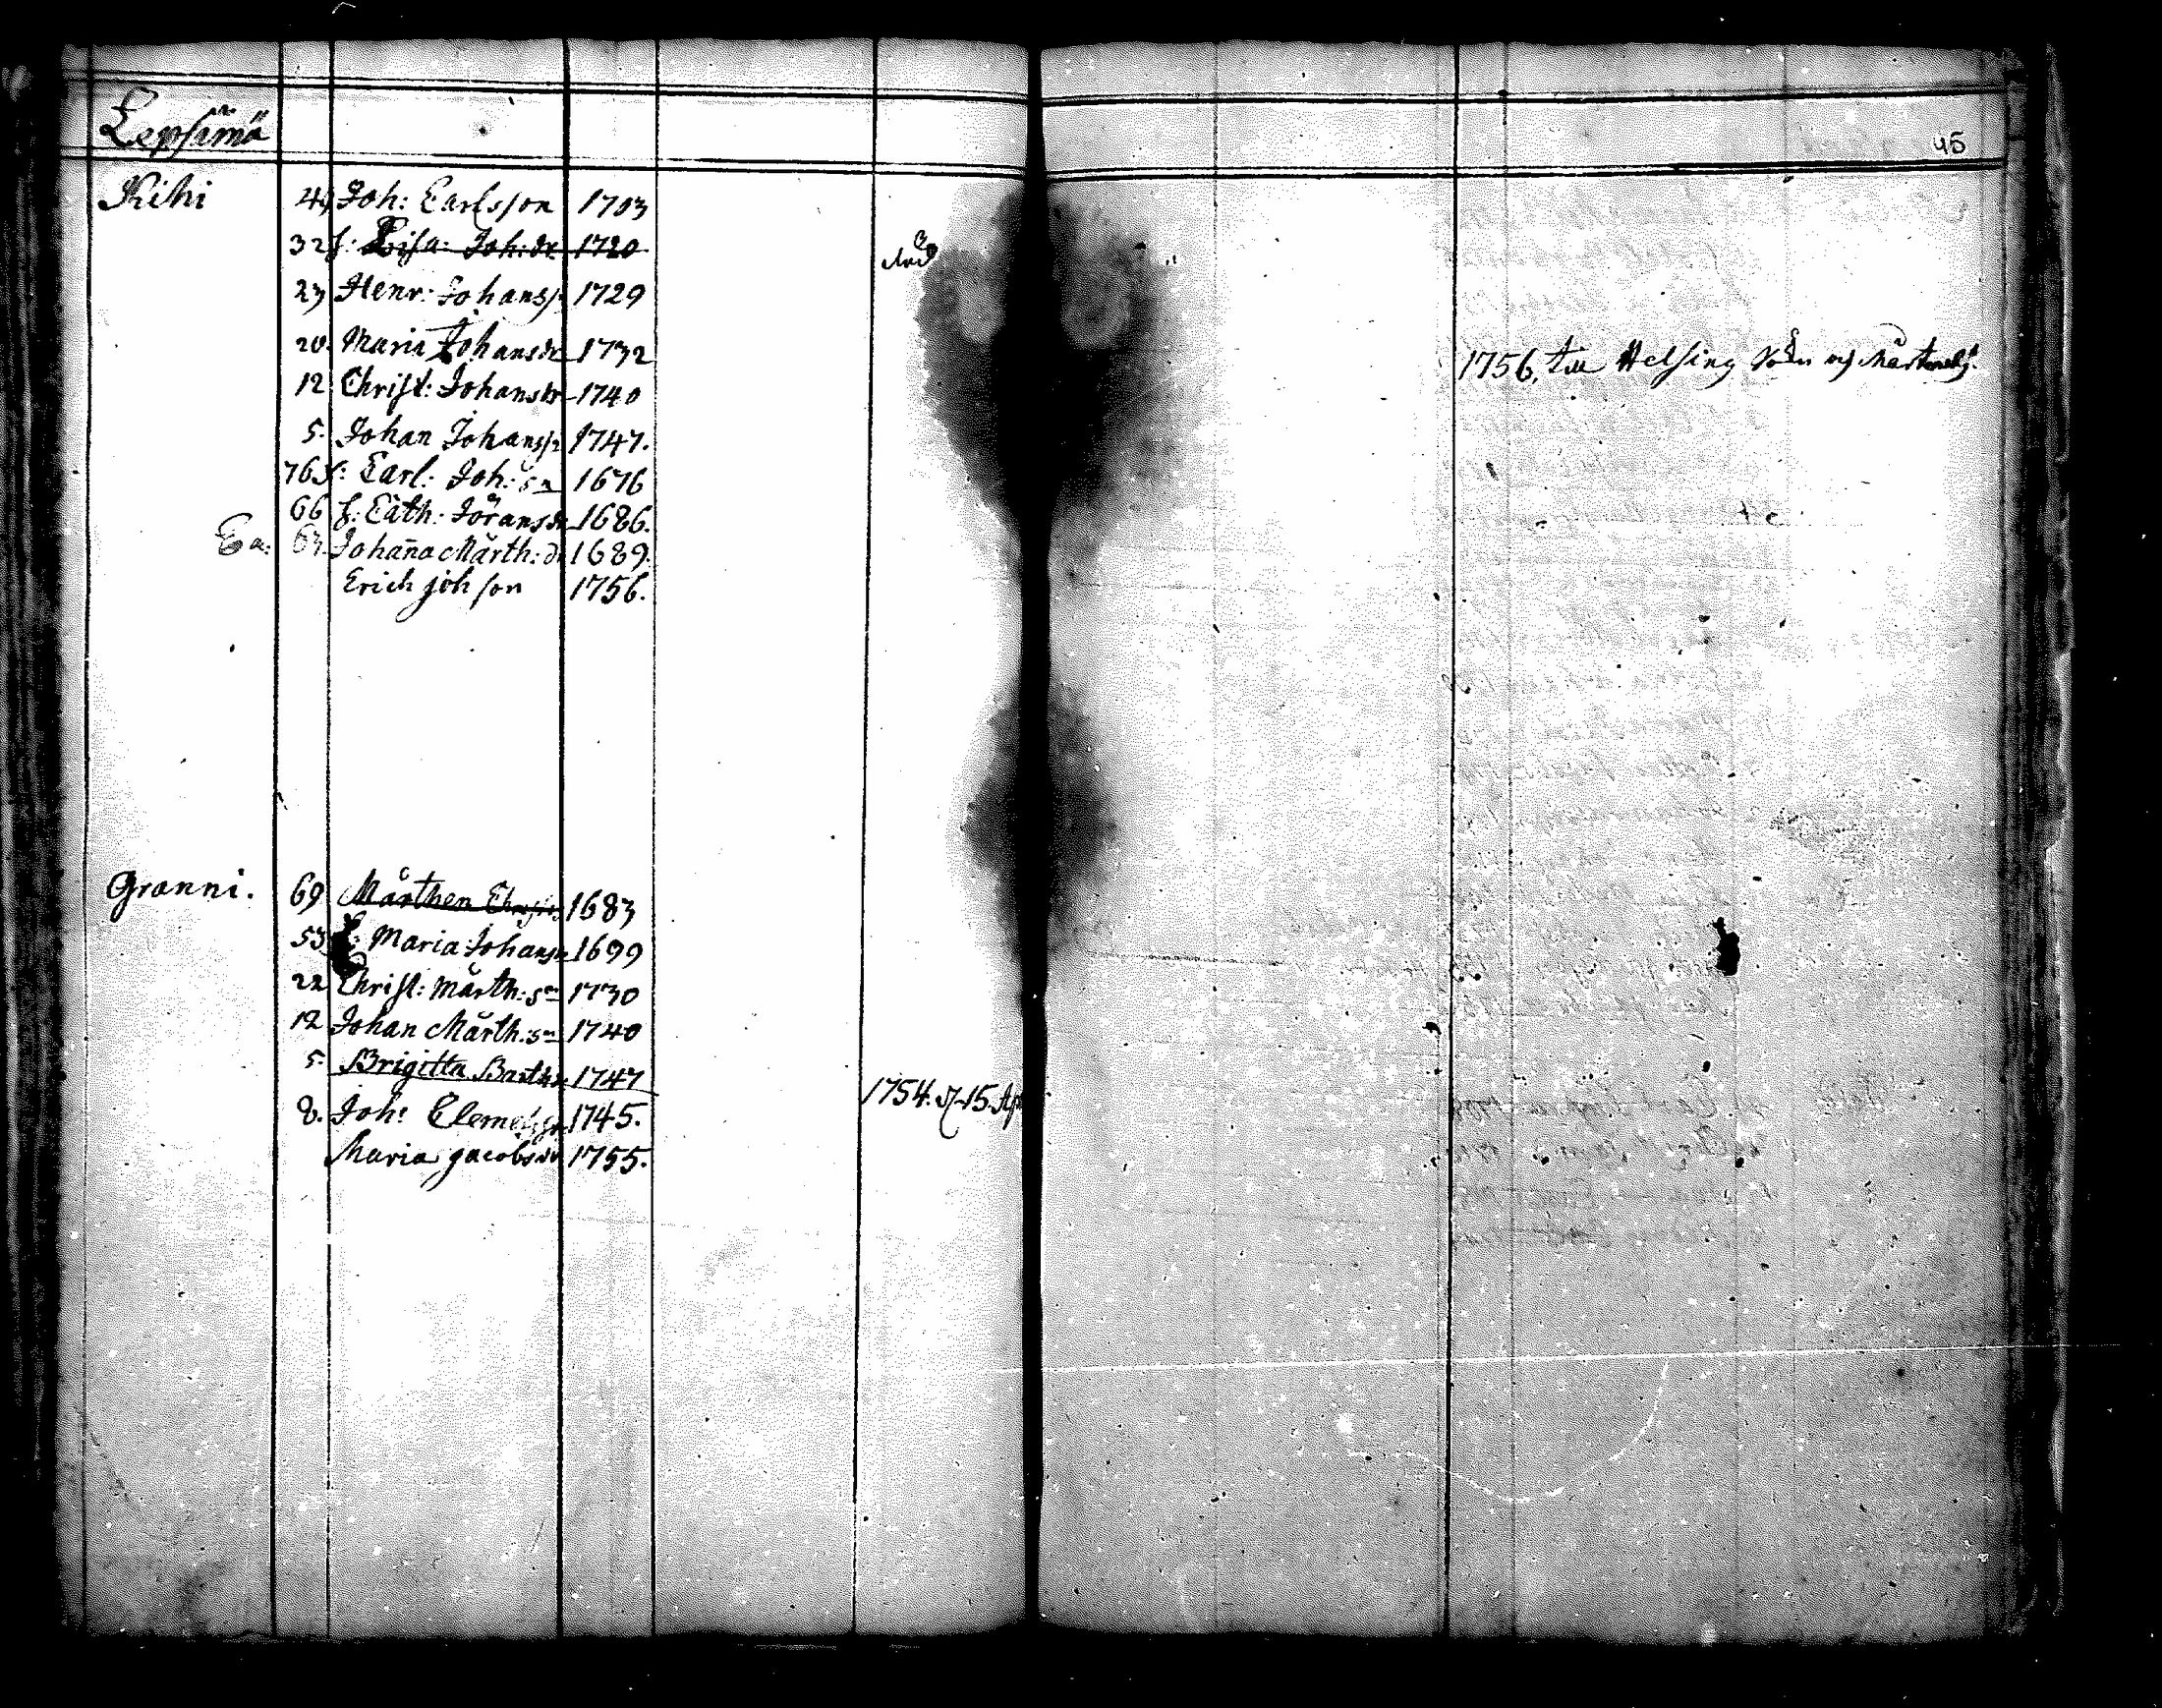 Lepsimä
45
Kihi 49 Joh: Carlsson 1703
32 h: Lisa: Joh: dr 1720 död
23 Henr: Johanss 1729
20. Maria Johansdr 1732 1756. till Helsing Sokn och Mårten
12 Christ: Johansdr 1740
5. Johan Johanss 1747.
76 Carl: Joh: sn 1676
66 h: Cath: Jöransdr 1686.
Ea: 63. Johaña Mårth: dr 1689.
Erich joh son 1756.
Granni. 69 Mårthen 1683
53 Maria Johansdr 1699
22 Christ: Mårth: sn 1730
12 Johan Mårth: sn 1740
5. Brigitta 1747 1754. d. 15. Apr
8. Joh: Clemetss 1745.
Maria jacobsdr 1755.